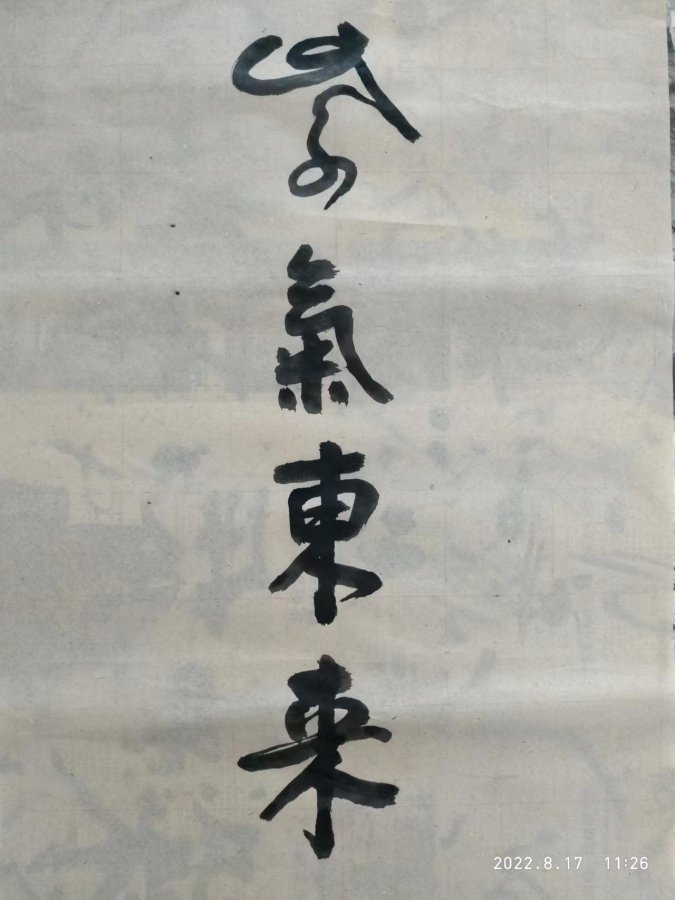 紫氣東来
2022.8.17 11:26